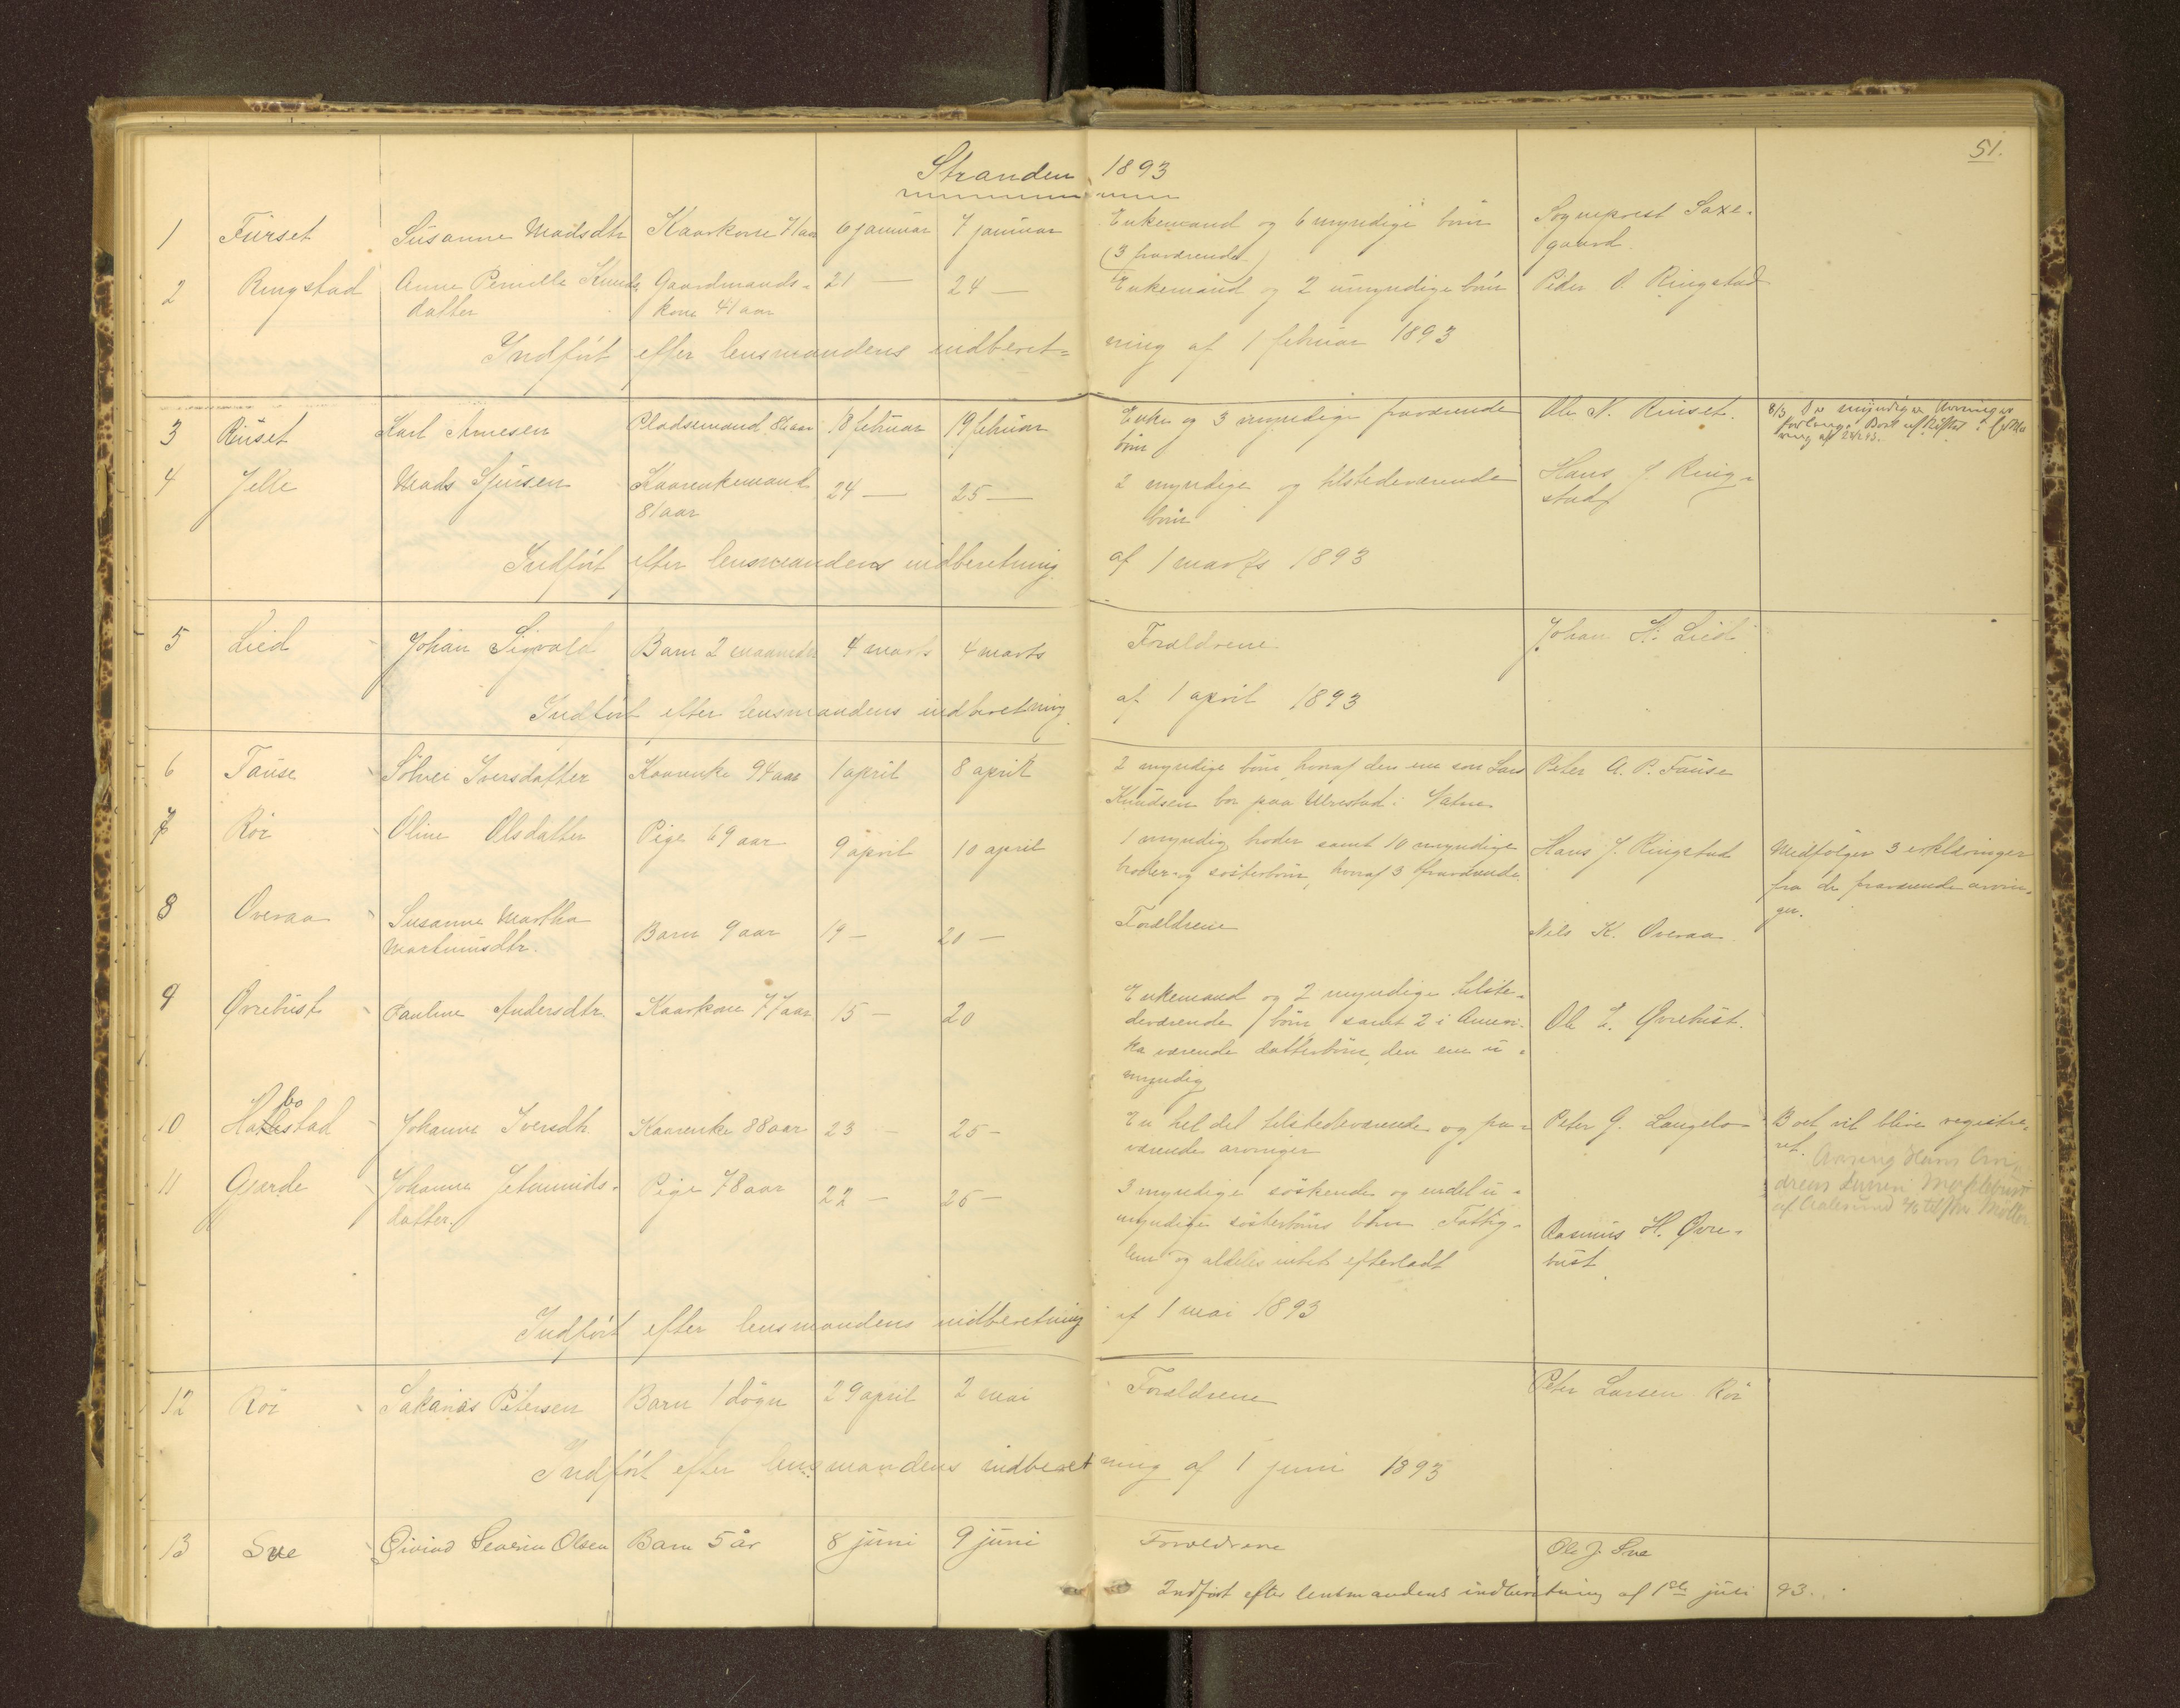 51.
Stranden 1893
1 Furset Susanne Madsdtr Kaarkone 71 aar 6 januar 7 januar Enkemand og 6 myndige børn Sogneprest Saxe-
(3 fraværende) gaard.
2 Ringstad Anne Pernille Knuds Gaardmands- 21 — 24 — Enkemand og 2 umyndige børn Peder O. Ringstad
datter kone 41 aar
Indført efter lensmandens indberet= ning af 1 februar 1893
3 Riuset Karl Arnesen Pladsemand aar 18 februar 19 februar Enke og 3 myndige fraværende Ole N. Riuset. 8/3 De myndige Arvinger
børn forlange Boet
4 Jelle Mads Sjursen Kaarenkemand 24 — 25 — 2 myndige og tilstedeværende Hans J. Ring-
81 aar børn stad
Indført efter lensmandens indberetning af 1 marts 1893
5 Lied Johan Sigvald Barn 2 maaneder 4 marts 4 marts Forældrene Johan H. Lied
Indført efter lensmandens indberetning af 1 april 1893
6 Fause Sølvei Iversdatter Kaarenke 94 aar 1 april 8 april 2 myndige børn, hvoraf den ene søn Lars Peter A. P. Fause
Knudsen bor paa Ulvestad i Vatne
7 Rör Oline Olsdatter Pige 69 aar 9 april 10 april 1 myndig broder samt 10 myndige Hans J. Ringstad Medfølger 3 erklæringer
broder- og søsterbørn, hvoraf 3 fraværende. fra de fraværende arvin-
ger.
8 Overaa Susanne Martha Barn 9 aar 19 — 20 — Forældrene Nils K. Overaa
Martinusdtr.
9 Øvrebust Pauline Andersdtr. Kaarkone 77 aar 15 — 20 Enkemand og 2 myndige tilste-
deværende børn samt 2 i Ameri- Ole L. Øvrebust.
ka værende datterbørn, den ene u-
myndig
10 stad Johanne Iversdtr Kaarenke 88 aar 23 — 25 — En hel del tilstedeværende og fra- Peter G. Langelo Boet vil blive registre-
værende arvinger ret.
11 Gjærde Johanne Jetmunds- Pige 78 aar 22 — 25 — 3 myndige søskende og endel u-
datter. myndige søsterbørns børn. Fattig- Rasmus H. Øvre-
lem og aldeles intet efterladt bust
Indført efter lensmandens indberetning af 1 mai 1893
12 Rör Sakarias Petersen Barn 1 døgn 29 april 2 mai Forældrene Peter Larsen Rör
Indført efter lensmandens indberet ning af 1 juni 1893
13 Sve Øivind Severin Olsen Barn 5 år 8 juni 9 juni Forældrene Ole J. Sve
Indført efter lensmandens indberetning af 1ste juli 93.